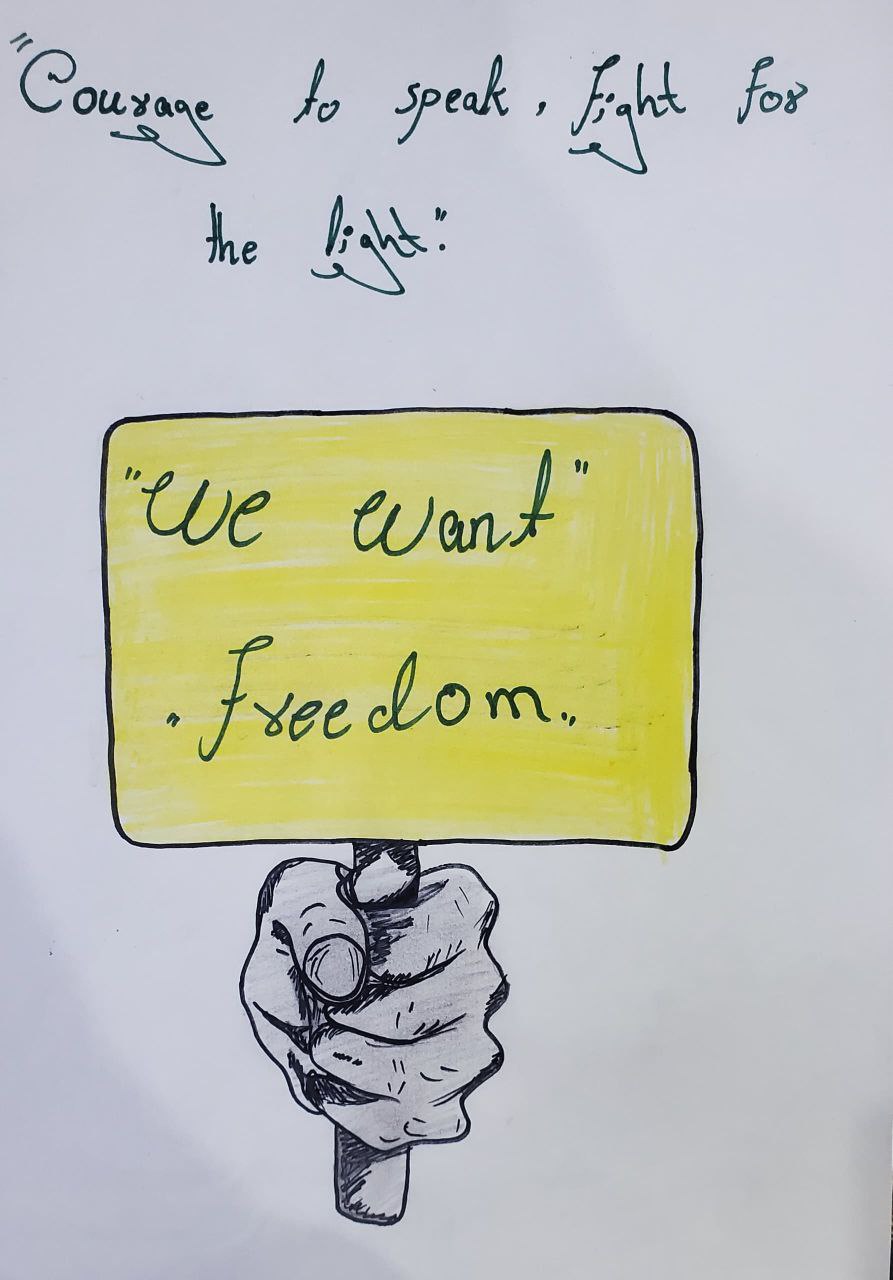 "Courage to speak, Fight for
the light".
"We want"
"Freedom"